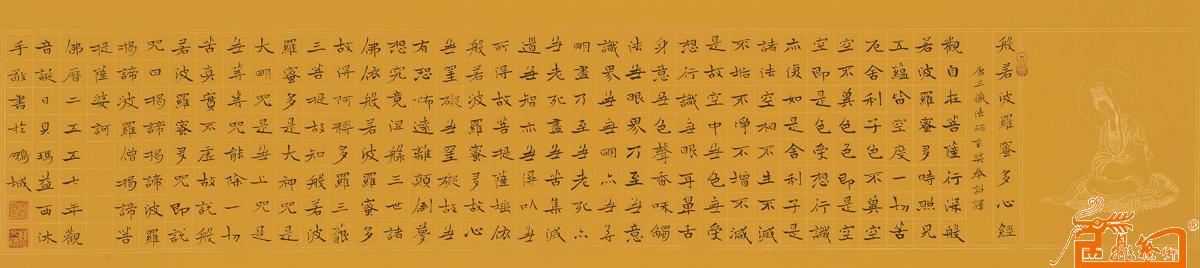 般若波羅蜜多心經
唐三藏法師玄奘奉詔譯
觀自在菩薩行深般
若波羅蜜多時照見
五蘊皆空度一切苦
厄舍利子色不異空
空不異色色即是空
空即是色受想行識
亦復如是舍利子是
諸法空相不生不滅
不垢不淨不增不減
是故空中無色無受
想行識無眼耳鼻舌
身意無色聲香味觸
法無眼界乃至無意
識界無無明亦無無
明盡乃至無老死亦
無老死盡無苦集滅
道無智亦無得以無
所得故菩提薩埵依
般若波羅蜜多故心
無罣礙無罣礙故無
有恐怖遠離顛倒夢
想究竟涅槃三世諸
佛依般若波羅蜜多
故得阿耨多羅三藐
三菩提故知般若波
羅蜜多是大神咒是
大明咒是無上咒是
無等等咒能除一切
苦真實不虛故說般
若波羅蜜多咒即說
咒曰揭諦揭諦波羅
揭諦波羅僧揭諦菩
提薩婆訶
佛曆二五五七年觀
音誕日貝瑪益西沐
手敬書於鵬城